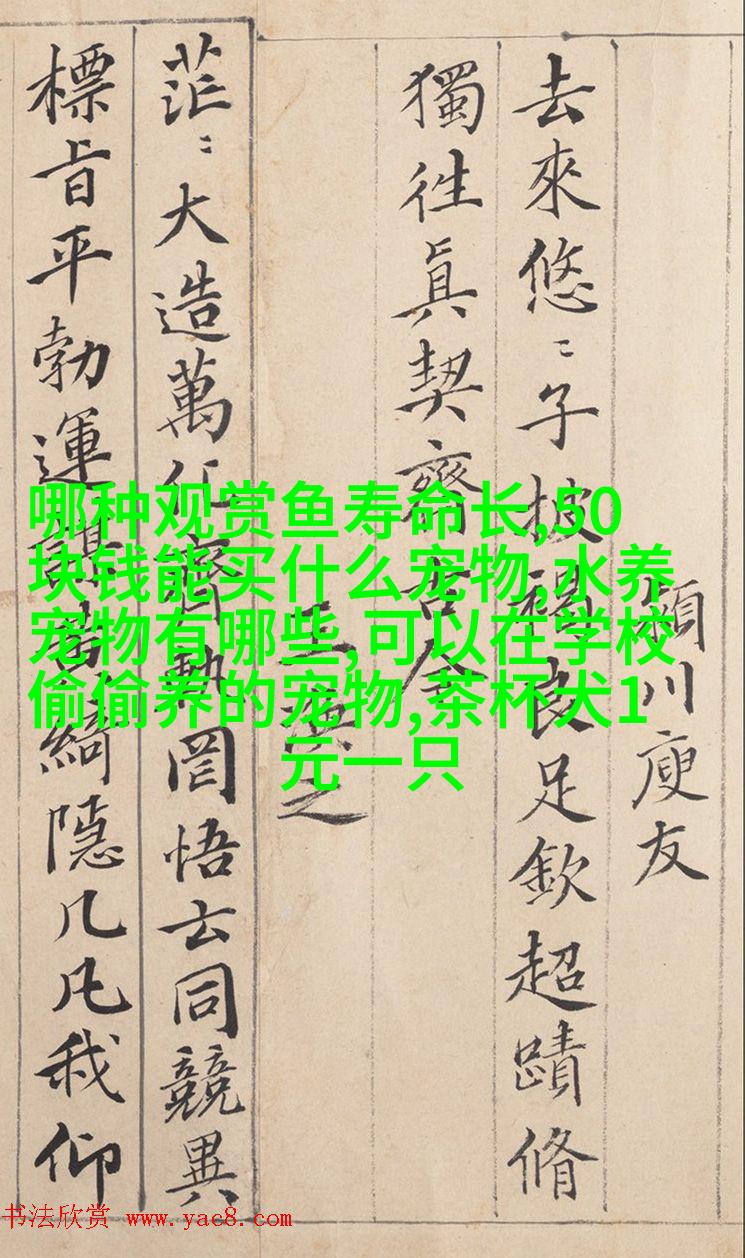 川庾友
去來悠〻子披褐良足欽超蹟脩
獨往眞契齊古今
王渙之
茫〻大造萬化齊軌罔悟玄同競異
標旨平勃運謨黃綺隱几凡我仰
哪种观赏鱼寿命长,50
块钱能买什么宠物,水养
宠物有哪些,可以在学校
偷偷养的宠物,茶杯犬1
元一只
书法欣赏 www.yac8.com